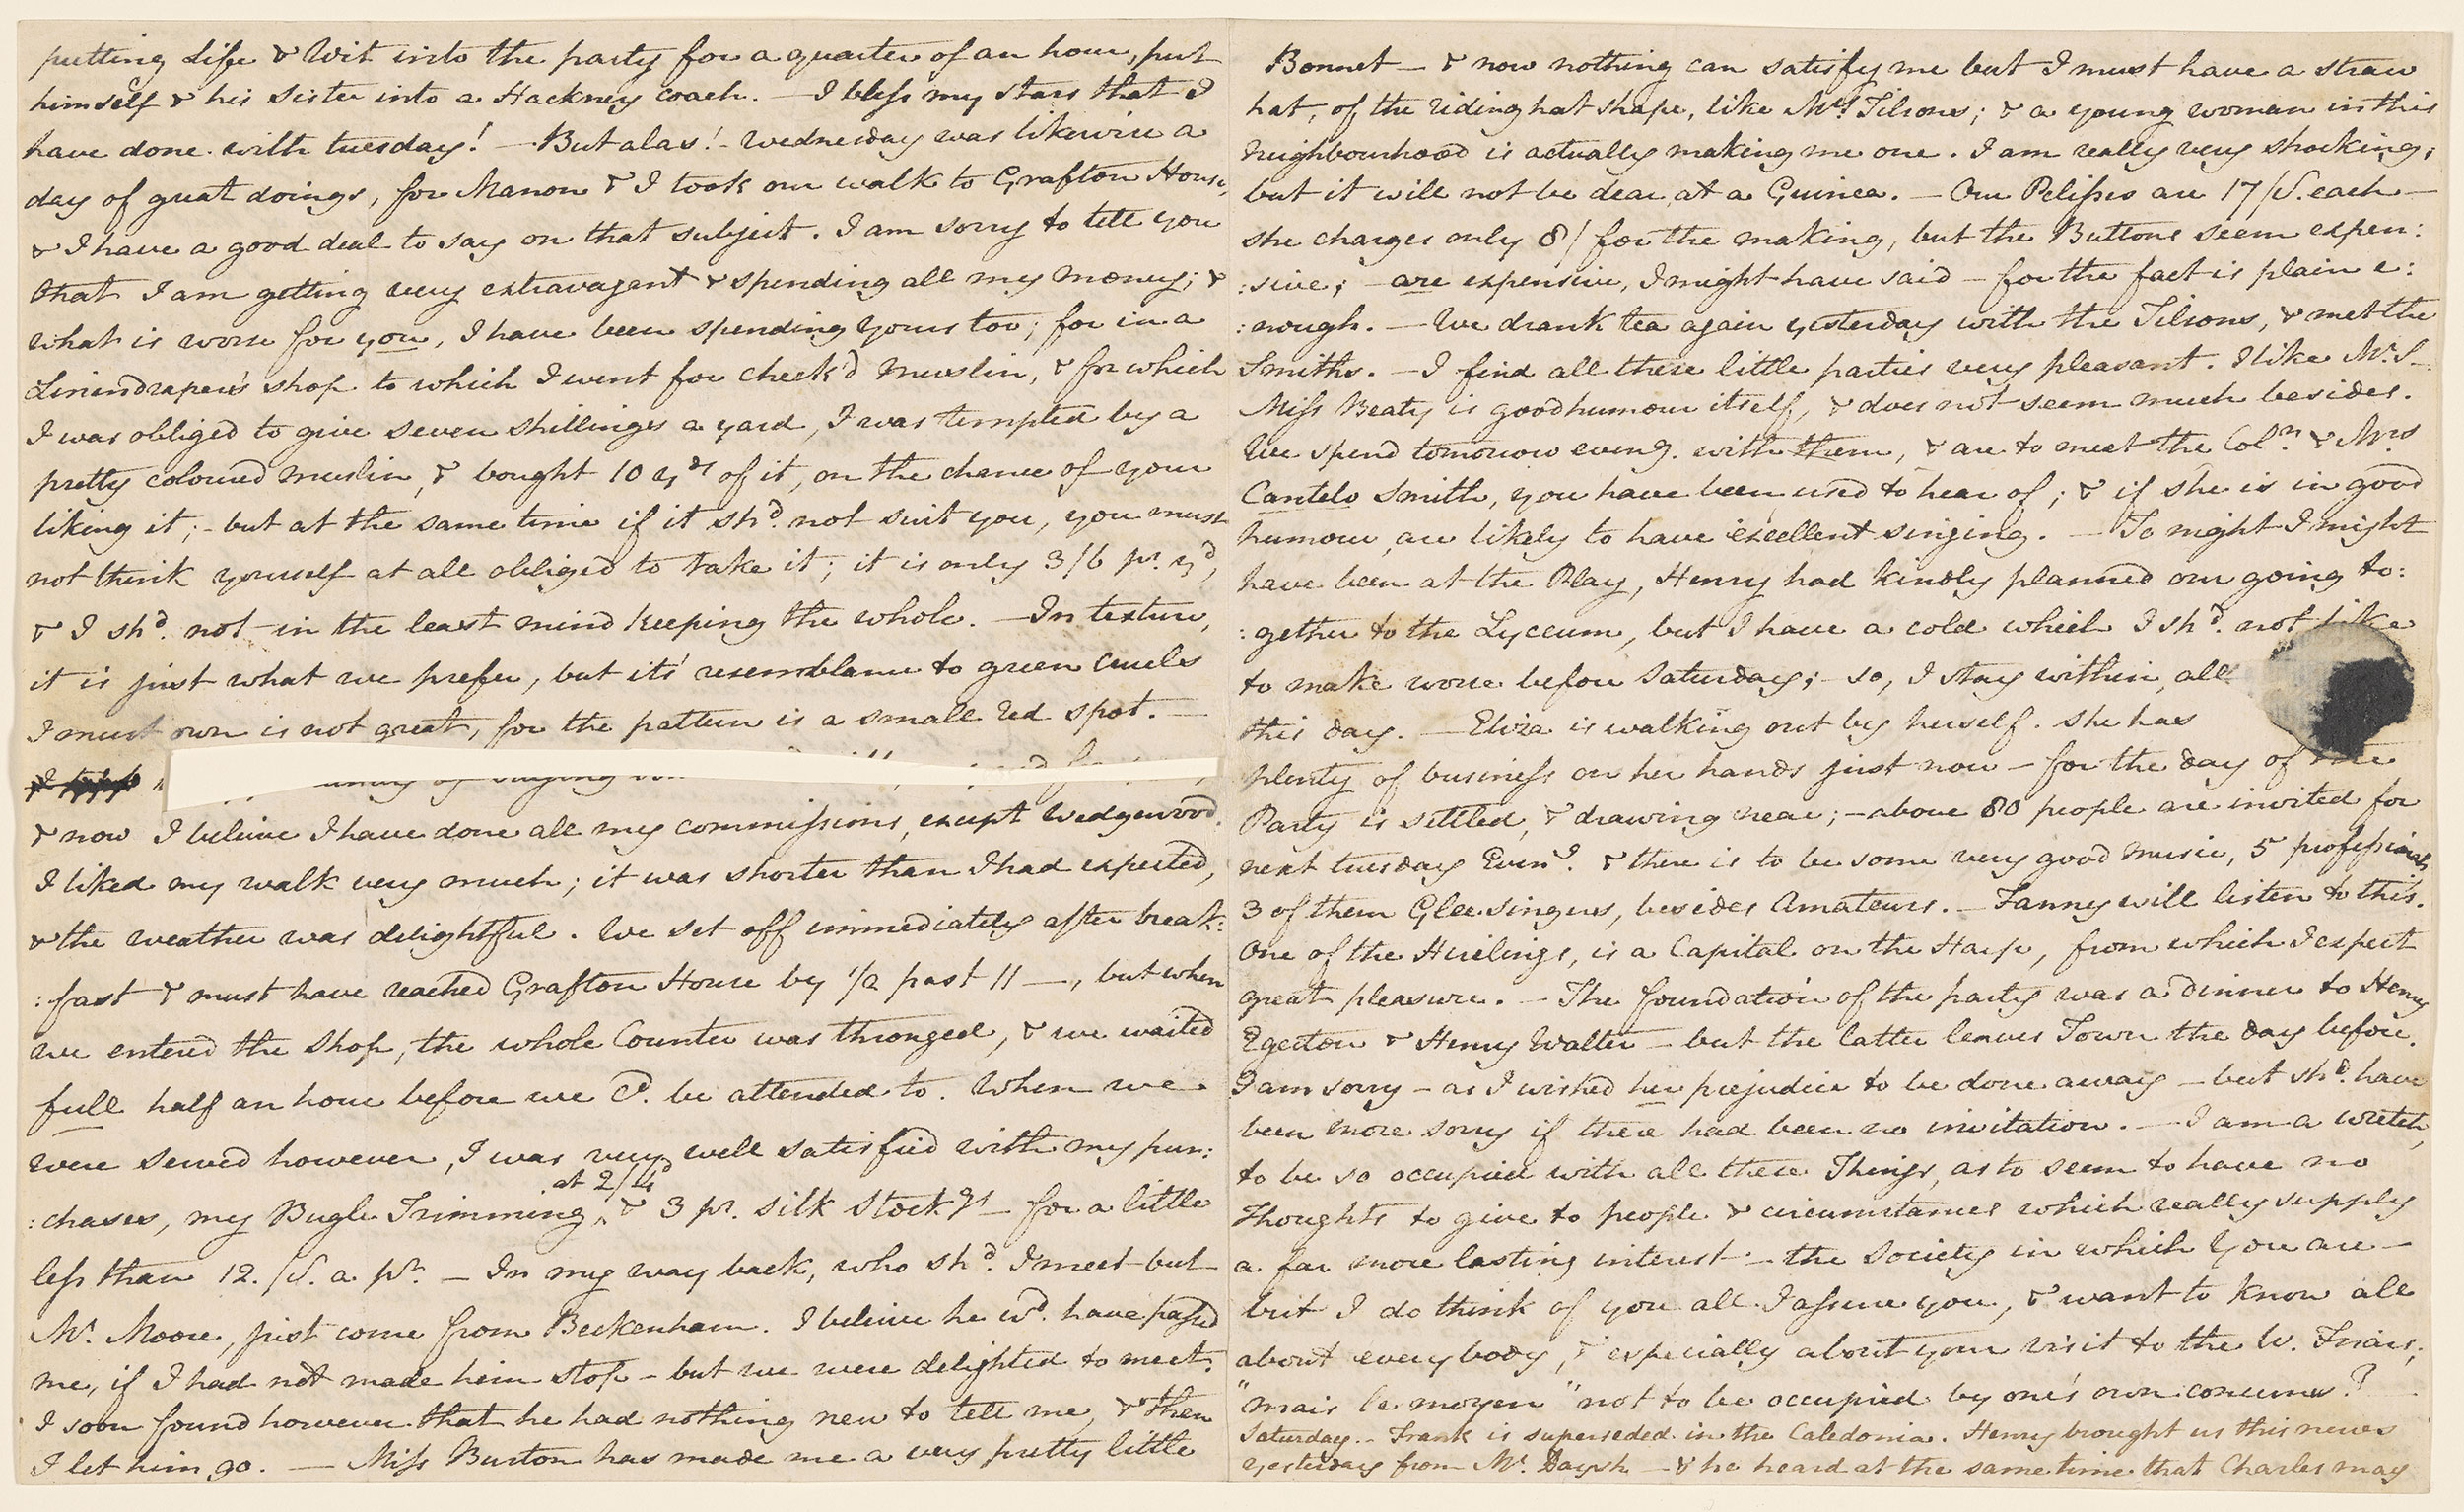 putting Life & Wit into the party for a quarter of an hour, put
himself & his Sister into a Hackney coach. — I bless my stars that I
have done with tuesday! — But alas! — Wednesday was likewise a
day of great doings, for Manon & I took our walk to Grafton House,
& I have a good deal to say on that subject. I am sorry to tell you
that I am getting very extravagant & spending all my Money; &
what is worse for you, I have been spending yours too; for in a
Linendraper's shop to which I went for check'd Muslin, & for which
I was obliged to give seven shillings a yard, I was tempted by a
pretty coloured muslin, & bought 10 yds of it, on the chance of your
liking it; - but at the same time if it shd. not suit you, you must
not think yourself at all obliged to take it; it is only 3/6 pr. yd,
& I shd. not in the least mind keeping the whole. — In texture,
it is just what we prefer, but its' resemblance to green cruels
I must own is not great, for the pattern is a small red spot. —
& now I beleive I have done all my commissions, except Wedgwood.
I liked my walk very much; it was shorter than I had expected,
& the weather was delightful. We set off immediately after break:
:fast & must have reached Grafton House by 1/2 past 11 —, but when
we entered the Shop, the whole Counter was thronged, & we waited
full half an hour before we cd. be attended to. When we
were served however, I was very well satisfied with my pur:
:chases, my Bugle Trimming at 2/4d & 3 pr. silk Stockgs for a little
less than 12./S. a pr. — In my way back, who shd. I meet but
Mr. Moore, just come from Beckenham. I beleive he wd. have passed
me, if I had not made him stop - but we were delighted to meet.
I soon found however that he had nothing new to tell me, & then
I let him go. — Miss Burton has made me a very pretty little
Bonnet — & now nothing can satisfy me but I must have a straw
hat, of the riding hat shape, like Mrs. Tilsons; & a young woman in this
Neighbourhood is actually making me one. I am really very shocking;
but it will not be dear at a Guinea. — Our Pelisses are 17/S. each —
she charges only 8/ for the making, but the Buttons seem expen:
:sive; - are expensive, I might have said - for the fact is plain e:
:nough. — We drank tea again yesterday with the Tilsons, & met the
Smiths. — I find all these little parties very pleasant. I like Mr. S —
Miss Beaty is goodhumour itself, & does not seem much besides.
We spend tomorrow eveng. with them, & are to meet the Coln. & Mrs
Cantelo Smith, you have been used to hear of; & if she is in good
humour, are likely to have excellent singing. — To night I might
have been at the Play, Henry had kindly planned our going to:
:gether to the Lyceum, but I have a cold which I shd. not like
to make worse before Saturday; - so, I stay within, all
this day. — Eliza is walking out by herself. She has
plenty of business on her hands just now - for the day of the
Party is settled, & drawing near; - above 80 people are invited for
next tuesday Eveng. & there is to be some very good Music, 5 professionals,
3 of them Glee-singers, besides Amateurs. — Fanny will listen to this.
One of the Hirelings, is a Capital on the Harp, from which I expect
great pleasure. — The foundation of the party was a dinner to Henry
Egerton & Henry Walter — but the latter leaves Town the day before.
I am sorry - as I wished her prejudice to be done away - but shd. have
been more sorry if there had been no invitation. — I am a wretch,
to be so occupied with all these Things, as to seem to have no
Thoughts to give to people & circumstances which really supply
a far more lasting interest - the Society in which you are —
but I do think of you all I assure you, & want to know all
about everybody, & especially about your visit to the W. Friars;
"mais le moyen" not to be occupied by one's own concerns?
Saturday. - Frank is superseded in the Caledonia. Henry brought us this news
yesterday from Mr. Daysh - & he heard at the same time that Charles may